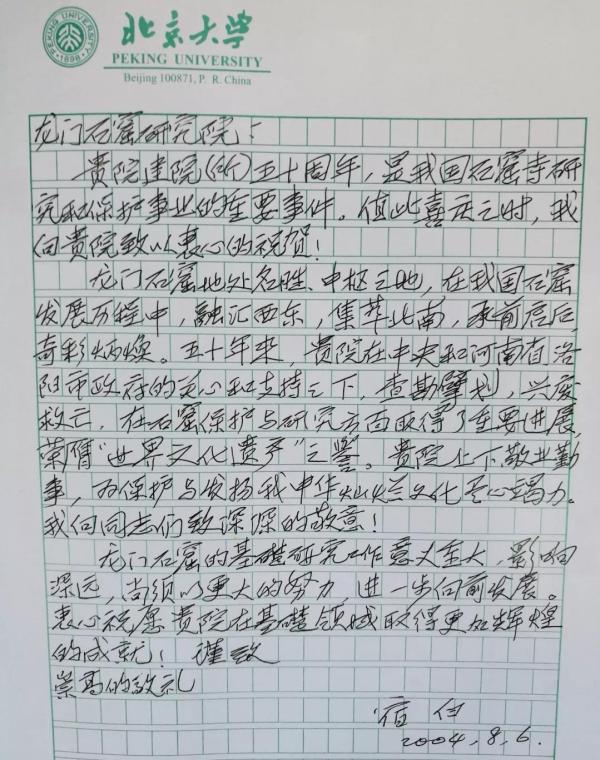 PEKING UNIVERSITY
1898
北京大学
PEKING UNIVERSITY
Beijing 100871, P. R. China
龙门石窟研究院：
贵院建院(所)五十周年，是我国石窟寺研
究和保护事业的重要事件。值此喜庆之时，我
向贵院致以衷心的祝贺！
龙门石窟地处名胜、中枢之地，在我国石窟
发展历程中，融汇西东，集萃北南，承前启后，
奇彩炳焕。五十年来，贵院在中央和河南省洛
阳市政府的关心和支持之下，查勘擘划，兴废
救亡，在石窟保护与研究方面取得了重要进展，
荣膺“世界文化遗产”之誉。贵院上下敬业勤
事，为保护与发扬我中华灿烂文化苦心竭力。
我向同志们致深深的敬意！
龙门石窟的基础研究工作意义重大，影响
深远，尚须以更大的努力，进一步向前发展。
衷心祝愿贵院在基础领域取得更加辉煌
的成就！谨致
崇高的敬礼
宿白
2004.8.6.